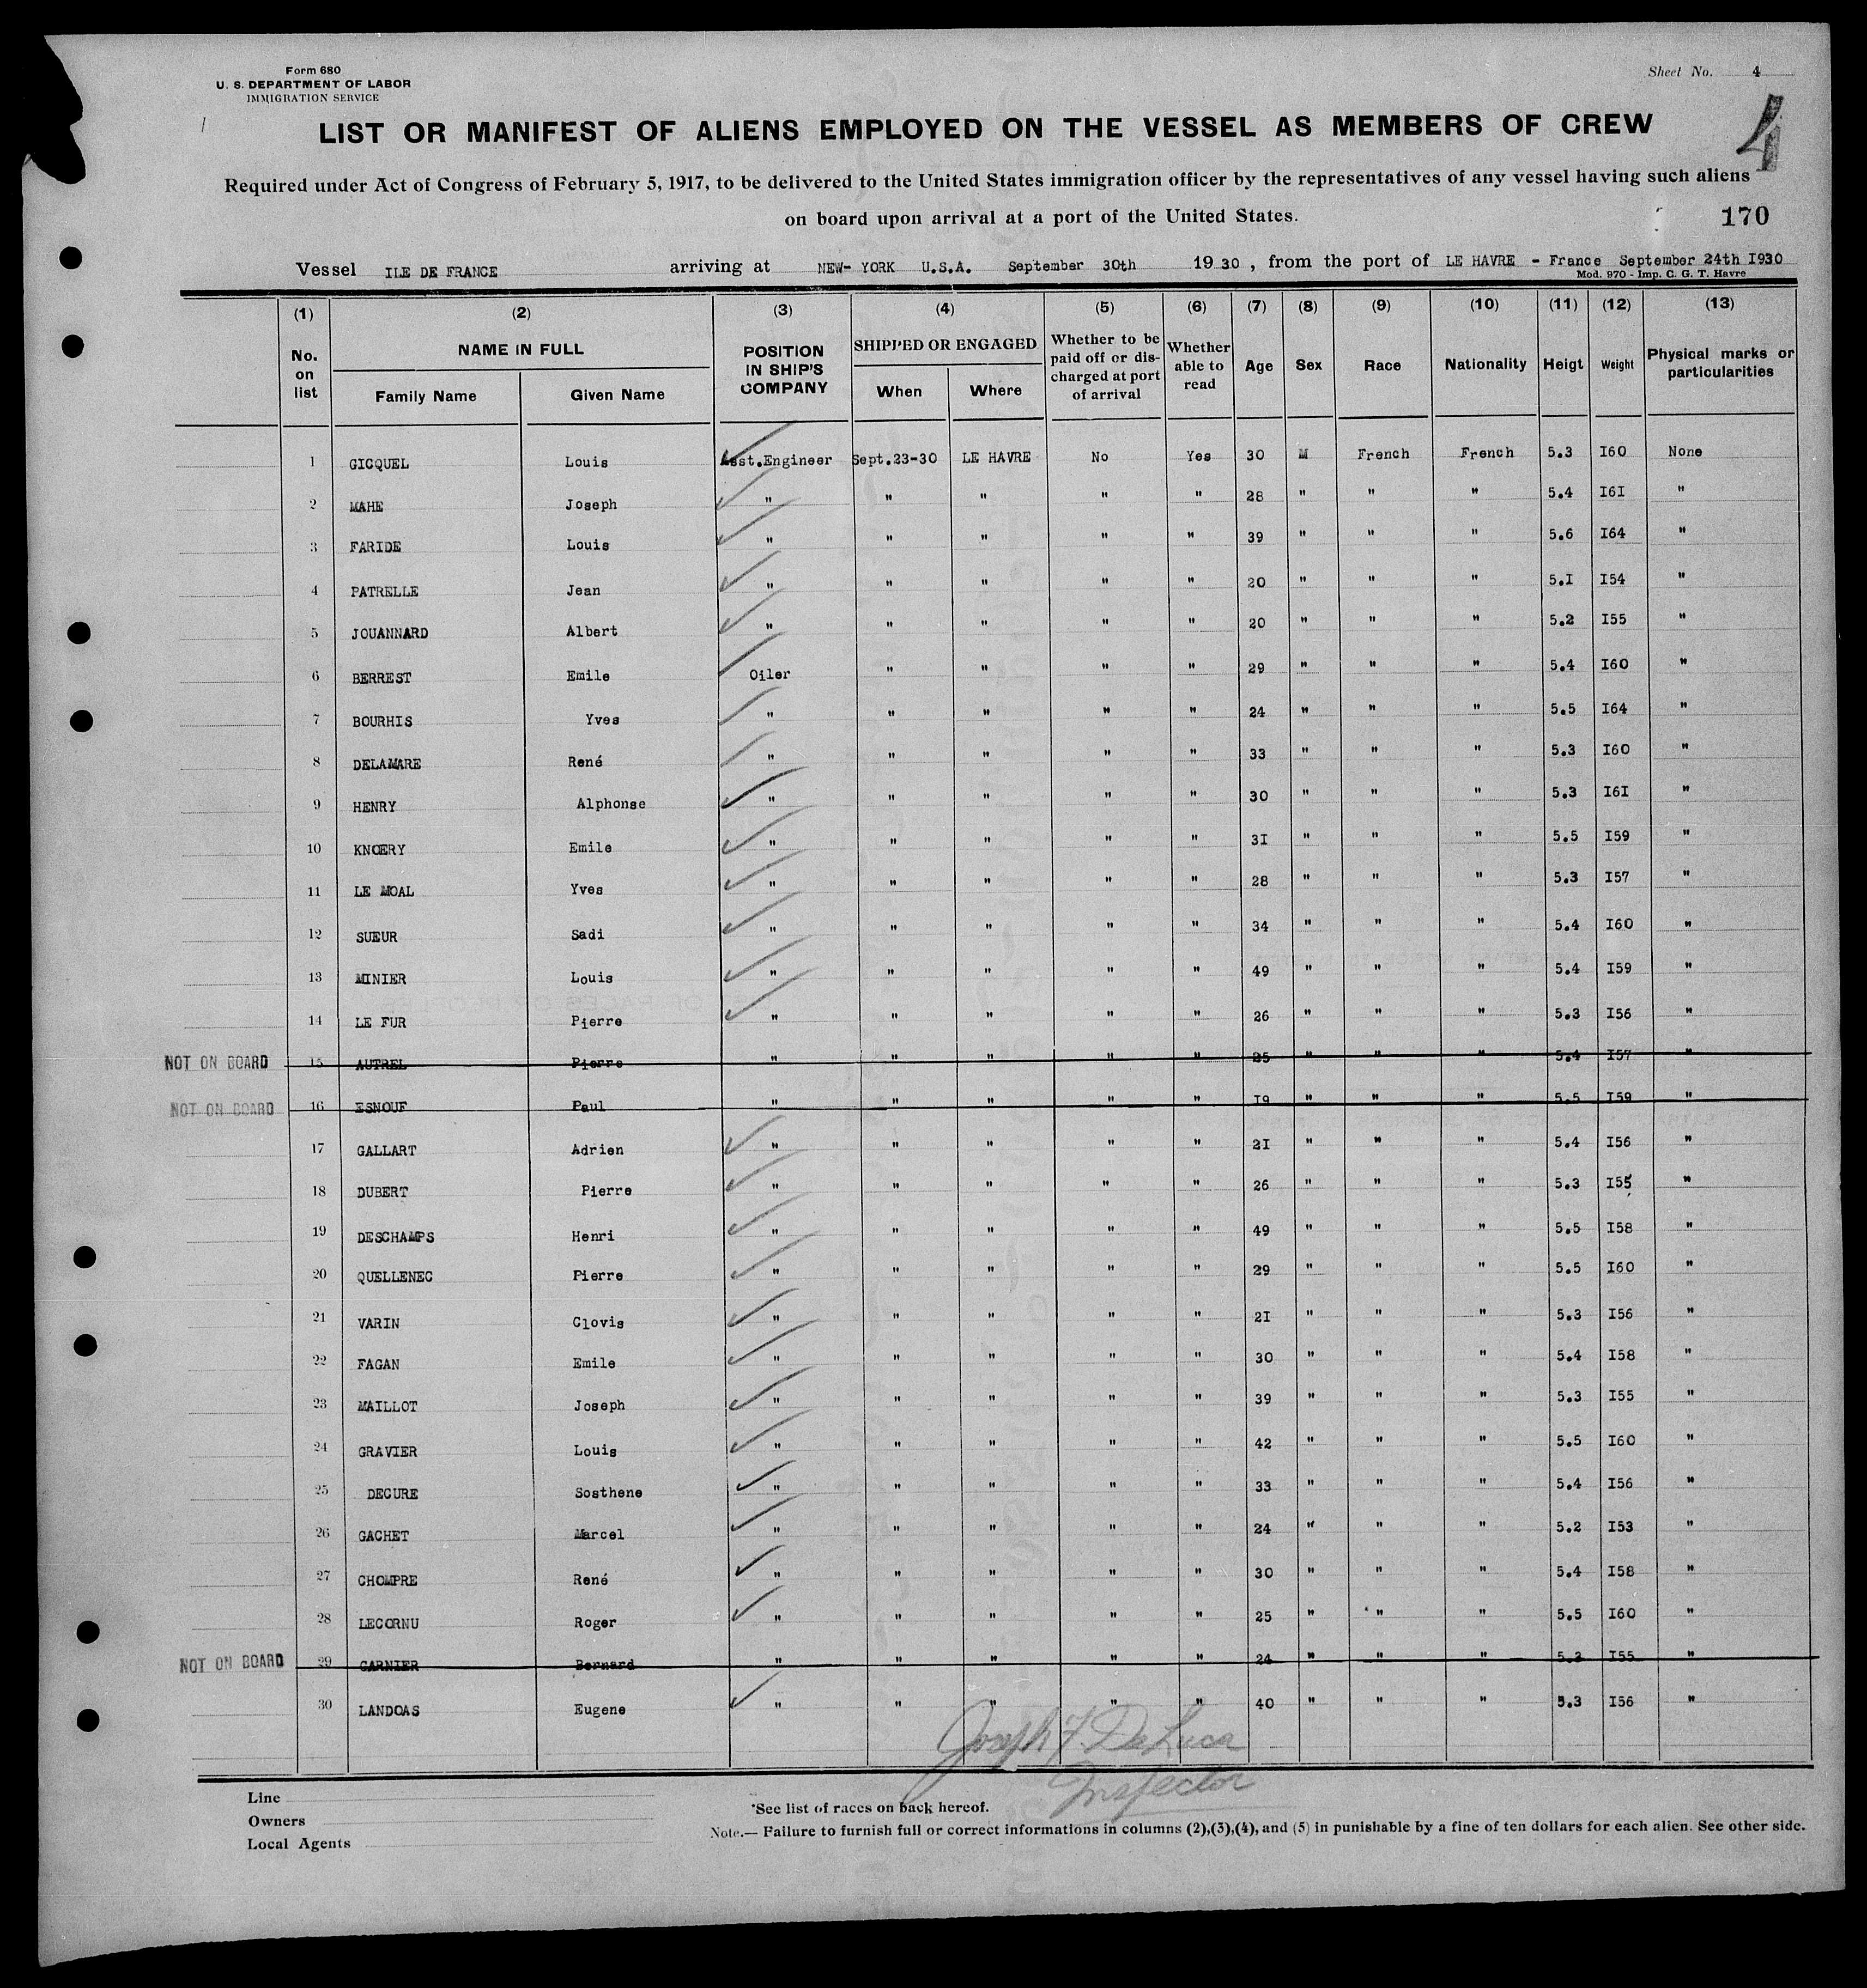 Form 680
U. S. DEPARTMENT OF LABOR
IMMIGRATION SERVICE
Sheet No. 4
4
LIST OR MANIFEST OF ALIENS EMPLOYED ON THE VESSEL AS MEMBERS OF CREW
Required under Act of Congress of February 5, 1917, to be delivered to the United States immigration officer by the representatives of any vessel having such aliens
on board upon arrival at a port of the United States.
170
Vessel ILE DE FRANCE arriving at NEW- YORK U.S.A. September 30th 1930, from the port of LE HAVRE - France September 24th I930
Mod. 970 - Imp. C. G. T. Havre
(1) (2) (3) (4) (5) (6) (7) (8) (9) (10) (11) (12) (13)
No. on list NAME IN FULL Family Name Given Name POSITION IN SHIP'S COMPANY SHIPPED OR ENGAGED When Where Whether to be paid off or discharged at port of arrival Whether able to read Age Sex Race Nationality Heigt Weight Physical marks or particularities
1 GICQUEL Louis Asst.Engineer Sept.23-30 LE HAVRE No Yes 30 M French French 5.3 I60 None
2 MAHE Joseph " " " " " 28 " " " 5.4 I6I "
3 FARIDE Louis " " " " " 39 " " " 5.6 I64 "
4 PATRELLE Jean " " " " " 20 " " " 5.I I54 "
5 JOUANNARD Albert " " " " " 20 " " " 5.2 I55 "
6 BERREST Emile Oiler " " " " 29 " " " 5.4 I60 "
7 BOURHIS Yves " " " " " 24 " " " 5.5 I64 "
8 DELAMARE René " " " " " 33 " " " 5.3 I60 "
9 HENRY Alphonse " " " " " 30 " " " 5.3 I6I "
10 KNOERY Emile " " " " " 3I " " " 5.5 I59 "
11 LE MOAL Yves " " " " " 28 " " " 5.3 I57 "
12 SUEUR Sadi " " " " " 34 " " " 5.4 I60 "
13 MINIER Louis " " " " " 49 " " " 5.4 I59 "
14 LE FUR Pierre " " " " " 26 " " " 5.3 I56 "
NOT ON BOARD 15 AUTREL Pierre " " " " " 25 " " " 5.4 I57 "
NOT ON BOARD 16 ESNOUF Paul " " " " " I9 " " " 5.5 I59 "
17 GALLART Adrien " " " " " 2I " " " 5.4 I56 "
18 DUBERT Pierre " " " " " 26 " " " 5.3 I55 "
19 DESCHAMPS Henri " " " " " 49 " " " 5.5 I58 "
20 QUELLENEC Pierre " " " " " 29 " " " 5.5 I60 "
21 VARIN Clovis " " " " " 2I " " " 5.3 I56 "
22 FAGAN Emile " " " " " 30 " " " 5.4 I58 "
23 MAILLOT Joseph " " " " " 39 " " " 5.3 I55 "
24 GRAVIER Louis " " " " " 42 " " " 5.5 I60 "
25 DECURE Sosthene " " " " " 33 " " " 5.4 I56 "
26 GACHET Marcel " " " " " 24 " " " 5.2 I53 "
27 CHOMPRE René " " " " " 30 " " " 5.4 I58 "
28 LECORNU Roger " " " " " 25 " " " 5.5 I60 "
NOT ON BOARD 29 GARNIER Bernard " " " " " 24 " " " 5.3 I55 "
30 LANDOAS Eugene " " " " " 40 " " " 5.3 I56 "
Joseph F. DeLuca
Inspector
Line
Owners
Local Agents
*See list of races on back hereof.
Note.— Failure to furnish full or correct informations in columns (2),(3),(4), and (5) in punishable by a fine of ten dollars for each alien. See other side.